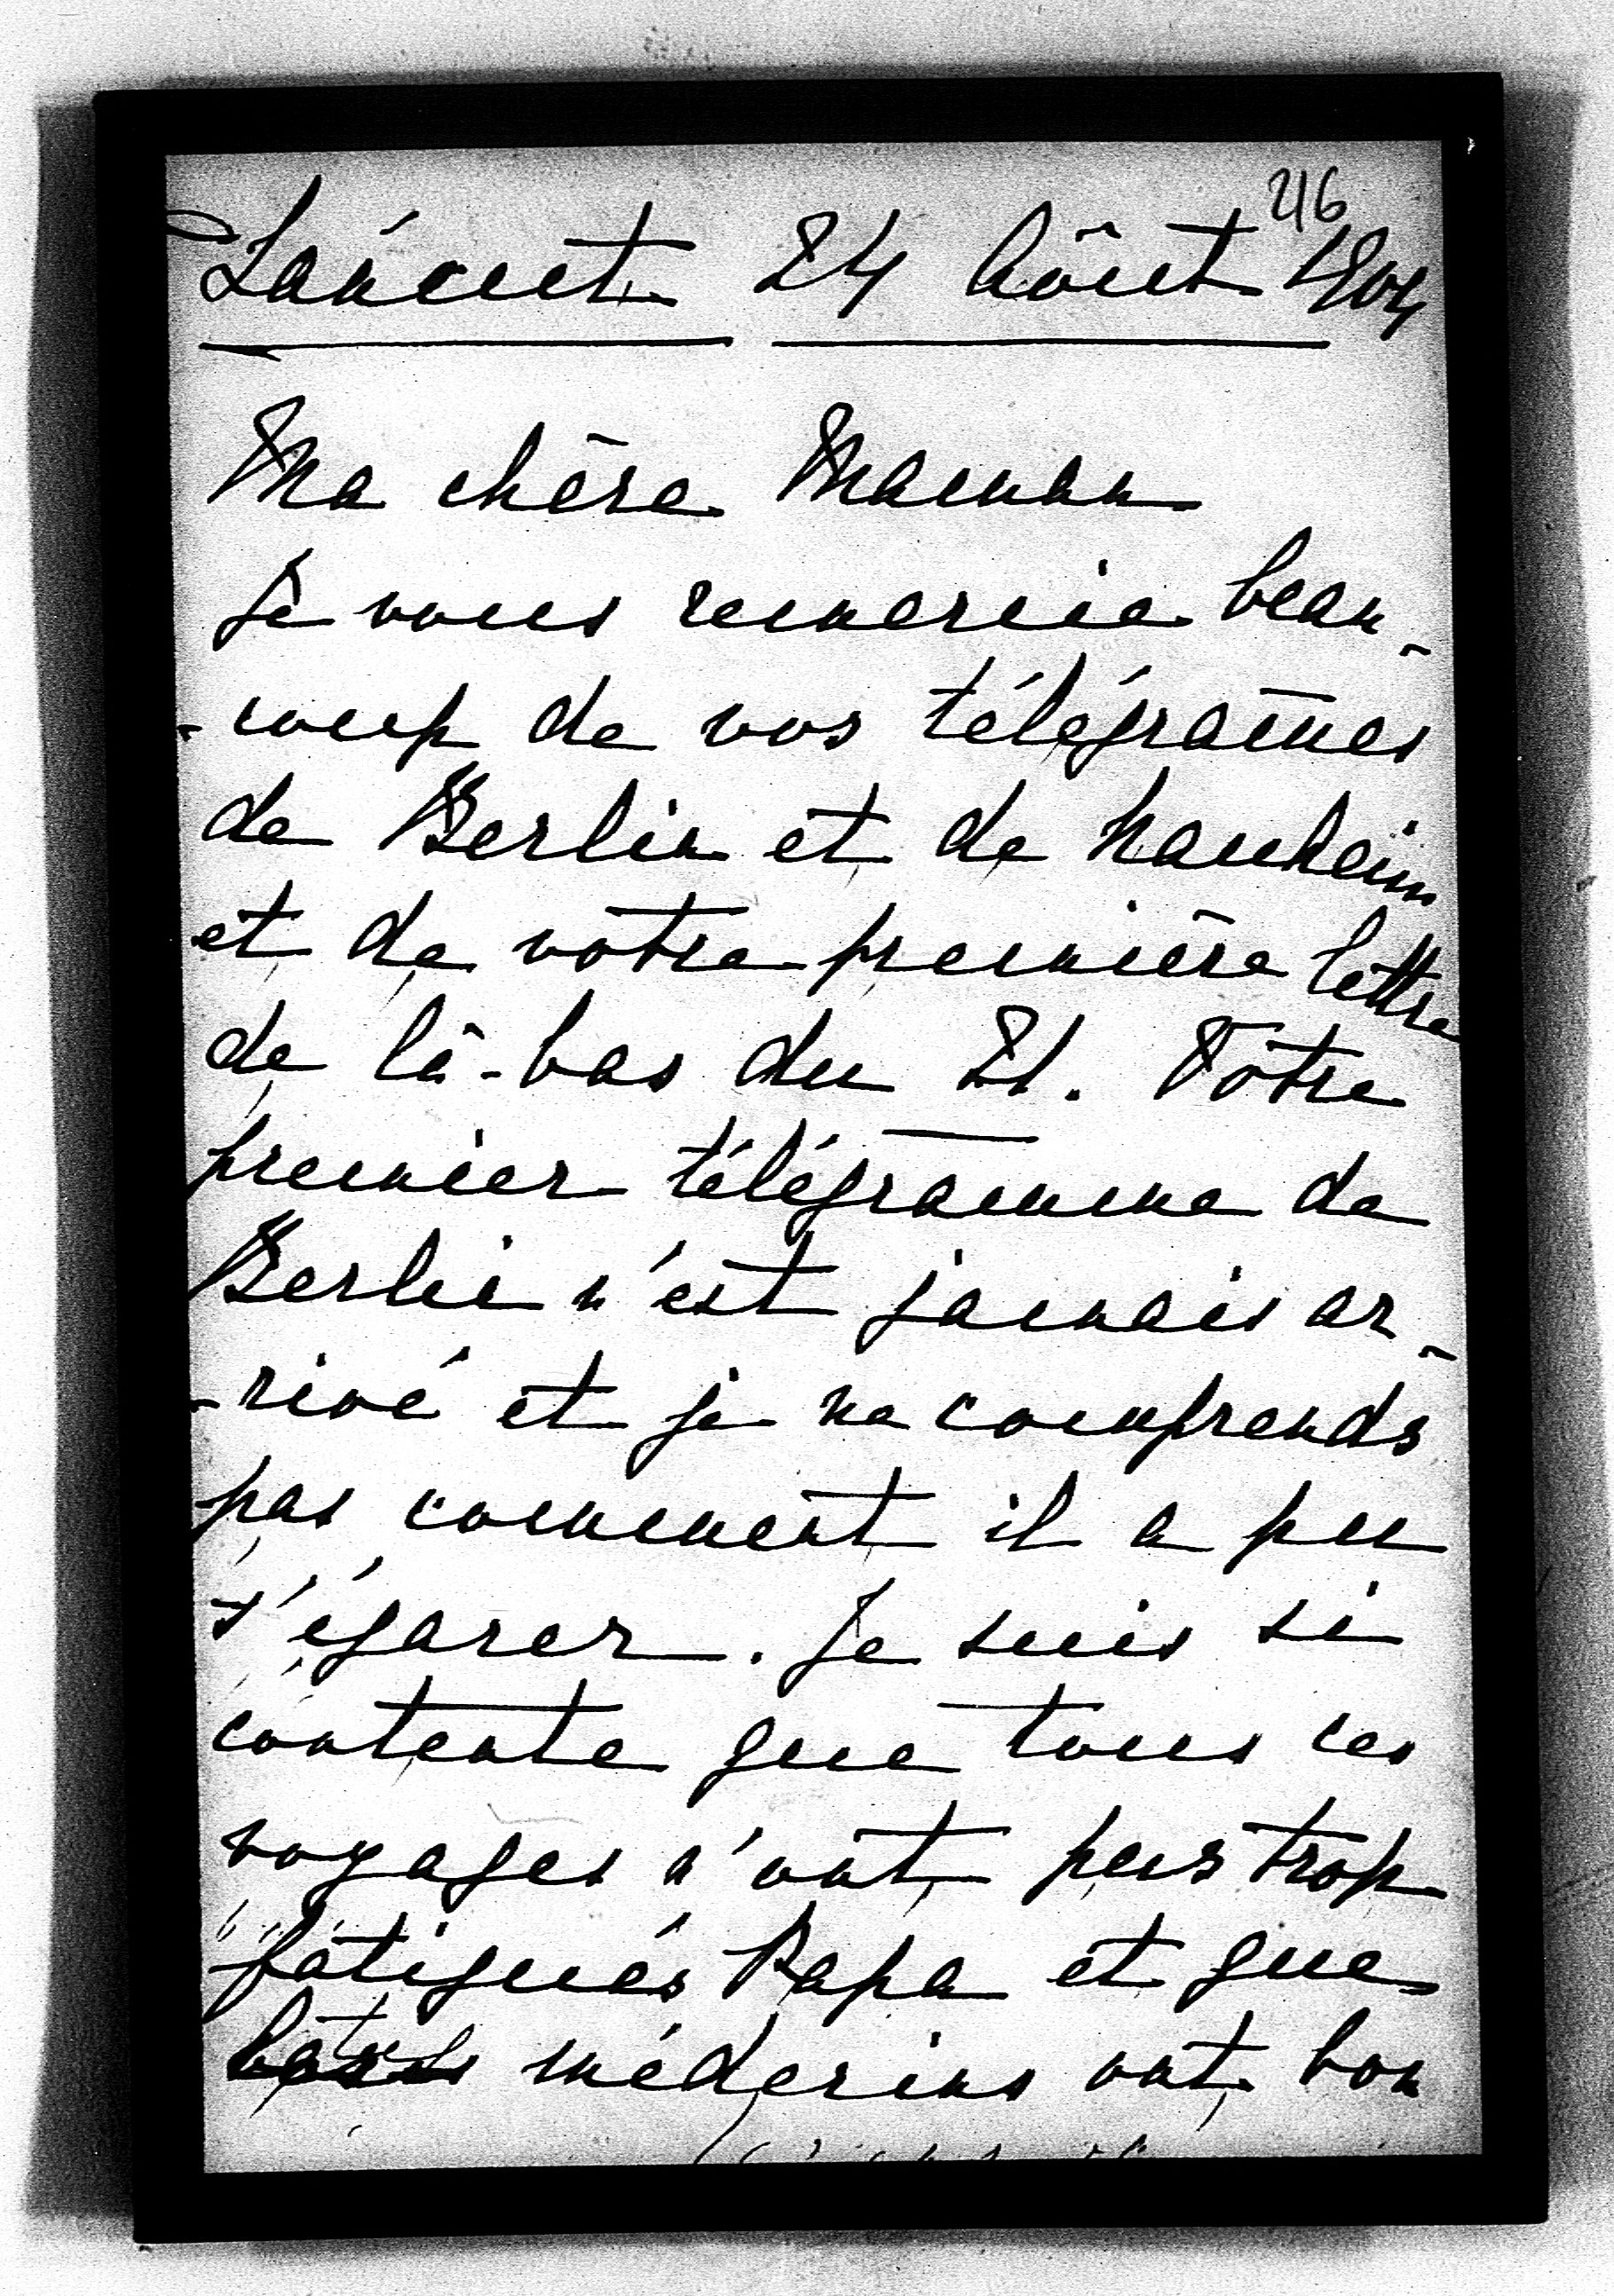 216
Lancut 24 Aôut 1904
Ma chère Maman
Je vous remercie beau-
-coup de vos télégram̄es
de Berlin et de Nauheim
et de votre première lettre
de là-bas du 21. Votre
premier télégramme de
Berlin n'est jamais ar-
-rivé et je ne comprends
pas comment il a pu
s'égarer. Je suis si
contente que tous ces
voyages n'ont pas trop
fatigués Papa et que
médecins ont bon